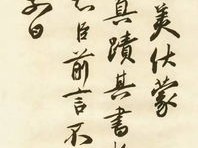 美伏蒙
真蹟其書
臣前言不
日